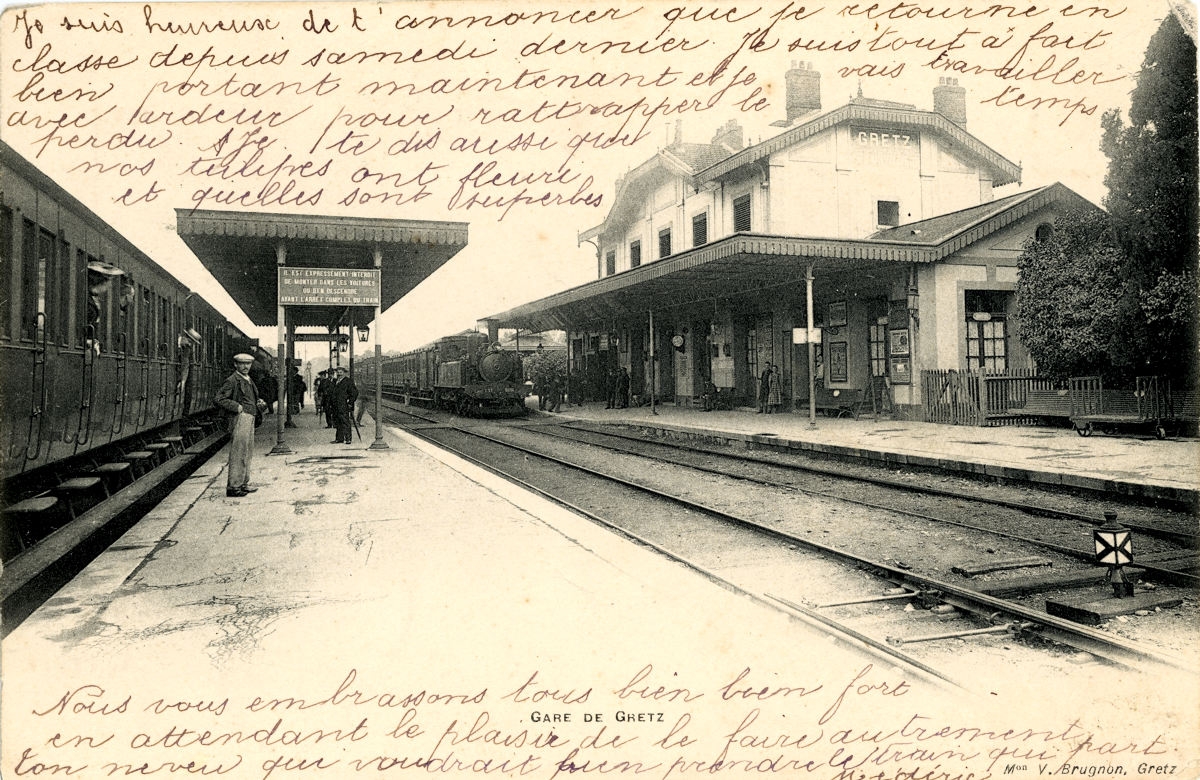 Je suis heureux de t'annoncer que je retourne en
classe depuis samedi dernier. Je suis tout à fait
bien portant maintenant et je vais travailler
avec ardeur pour rattrapper le temps
perdu. Je te dis aussi que
nos tulipes ont fleuri
et quelles sont superbes
GRETZ
IL EST EXPRESSÉMENT INTERDIT
DE MONTER DANS LES VOITURES
OU D'EN DESCENDRE
AVANT L'ARRÊT COMPLET DU TRAIN
Nous vous embrassons tous bien bien fort
GARE DE GRETZ
en attendant le plaisir de le faire autrement
Ton neveu qui voudrait bien prendre le train qui part.
Frédéric
Mon V. Brugnon, Gretz